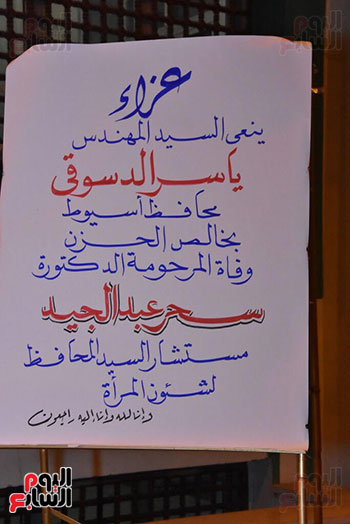 عزاء
ينعى السيد المهندس
ياسر الدسوقى
محافظ أسيوط
بخالص الحزن
وفاة المرحومة الدكتورة
سحر عبد الجيد
مستشار السيد المحافظ
لشئون المرأة
وإنا لله وإنا إليه راجعون
اليوم السابع
اليوم السابع
اليوم السابع